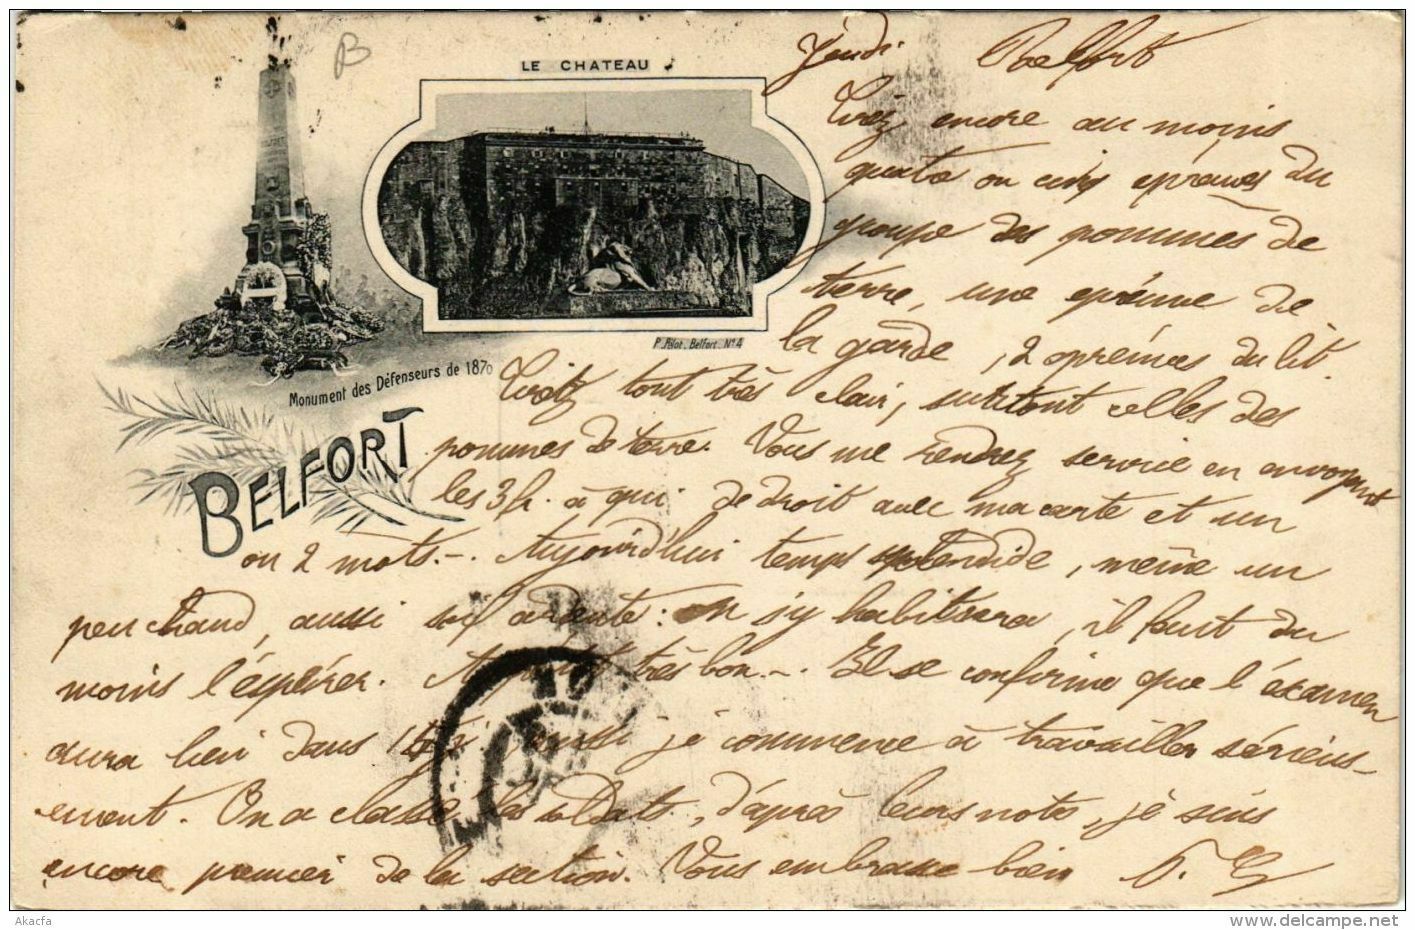 LE CHATEAU
B
Jeudi Belfort
Tirez encore au moins
quatre ou cinq épreuves du
groupe des pommes de
terre, une épreuve de
la garde, 2 épreuves du lit.
P. Pélot. Belfort. No 4
Monument des Défenseurs de 1870
BELFORT
tout très clair, surtout celles des
pommes de terre. Vous me rendrez service en envoyant
les 3 f. à qui de droit avec ma carte et un
ou 2 mots. - Aujourd'hui temps splendide, même un
peu chaud, aussi soif ardente: on s'y habituera, il faut du
moins l'espérer. très bon. - Il se confirme que l'examen
aura lieu dans aussi je commence à travailler sérieus-
ement. On a classé les soldats, d'après leurs notes, je suis
encore premier de la section. Vous embrasse bien
Akacfa
www.delcampe.net